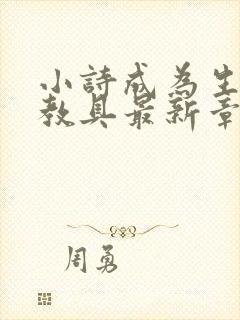 小詩成為生
教具最新章
周勇